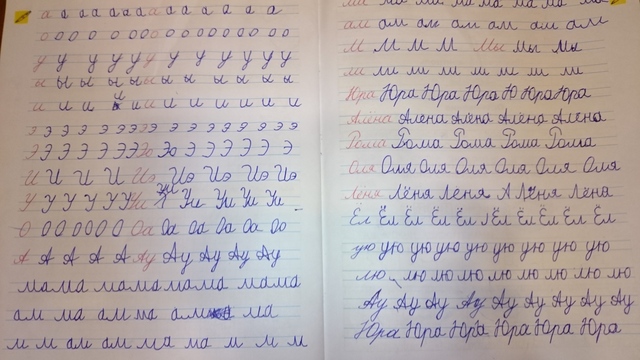 а а а а а а а а а а а а
о о о о о о о о о о о о о о
у у у у у у у у у у у
ы ы ы ы ы ы ы ы ы ы
и и и и и и и и и и и
э э э э э э э э э э э э
Э Э Э Э Э Э Э Эо Эо Э Э Э Э Э
И И И И И Иэ Иэ Иэ Иэ Иэ
У У У У У У Уи Уи Уи Уи Уи
О О О О О О О Оа Оа Оа Оа Оа Оо
А А А А А Ау Ау Ау Ау Ау
мама мама мама мама мама
ам ма ам ма ам ма
м м ам ам ма ма м м м
ма ма ма ма ма ма ма ма
ам ам ам ам ам ам ам
М М М М М Мы Мы Мы
ли ли ли ли ли ли ли ли
Юра Юра Юра Юра Ю Юра Юра
Алёна Алена Алёна Алена Алена
Рома Рома Рома Рома Рома
Оля Оля Оля Оля Оля Оля
Лёня Лёня Леня Л Лёня Лёна
Ёл Ёл Ёл Ёл Ёл Ёл Ёл Ёл Ёл
ую ую ую ую ую ую ую ую ую
лю лю лю лю лю лю лю лю лю
Ау Ау Ау Ау Ау Ау Ау Ау Ау
Юра Юра Юра Юра Юра Юра